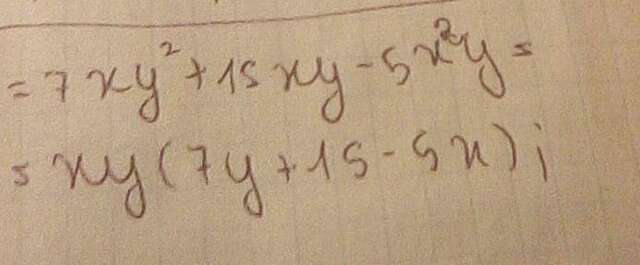 = 7xy² + 15xy - 5x²y =
= xy(7y + 15 - 5x);